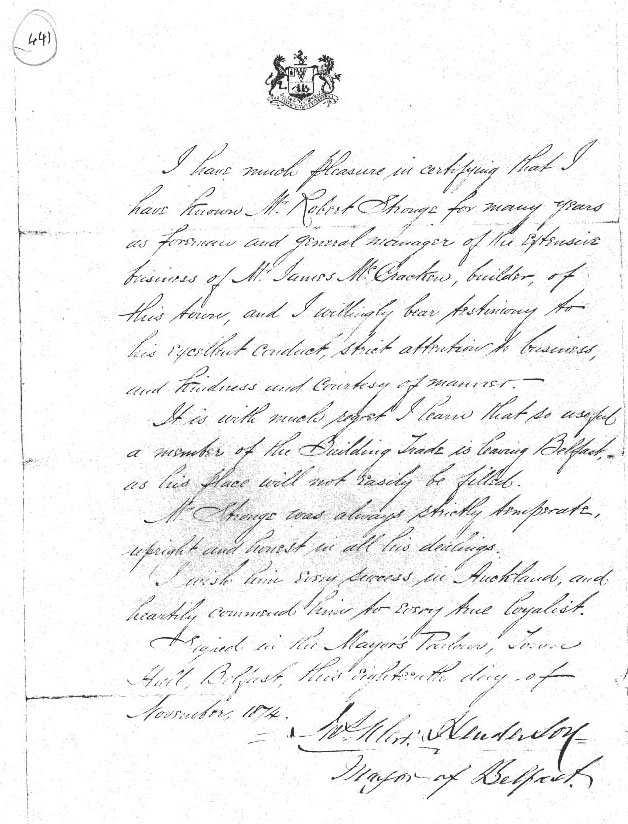 441
I have much pleasure in certifying that I
have known Mr Robert Stronge for many years
as foreman and general manager of the extensive
business of Mr James McCracken, builder, of
this town, and I willingly bear testimony to
his excellent conduct, strict attention to business,
and kindness and courtesy of manner.—
It is with much regret I learn that so useful
a member of the Building Trade is leaving Belfast,
as his place will not easily be filled.
Mr Stronge was always strictly temperate,
upright and honest in all his dealings.
I wish him every success in Auckland, and
heartily commend him to every true loyalist.
Signed in the Mayor's Parlour, Town
Hall, Belfast, this eighteenth day of
November, 1874.
Henderson
Mayor of Belfast.